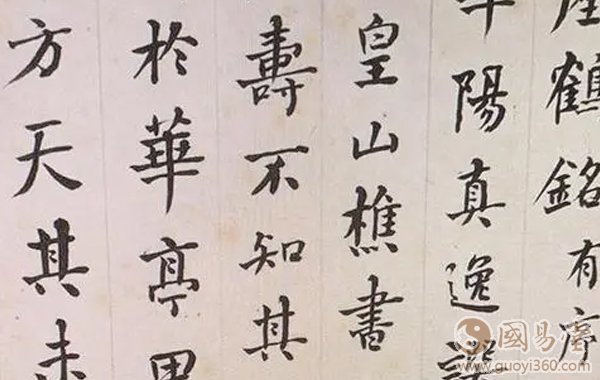 鶴銘有序
陽真逸
皇山樵書
壽不知其
於華亭
方天其未
國易堂
www.guoyi360.com